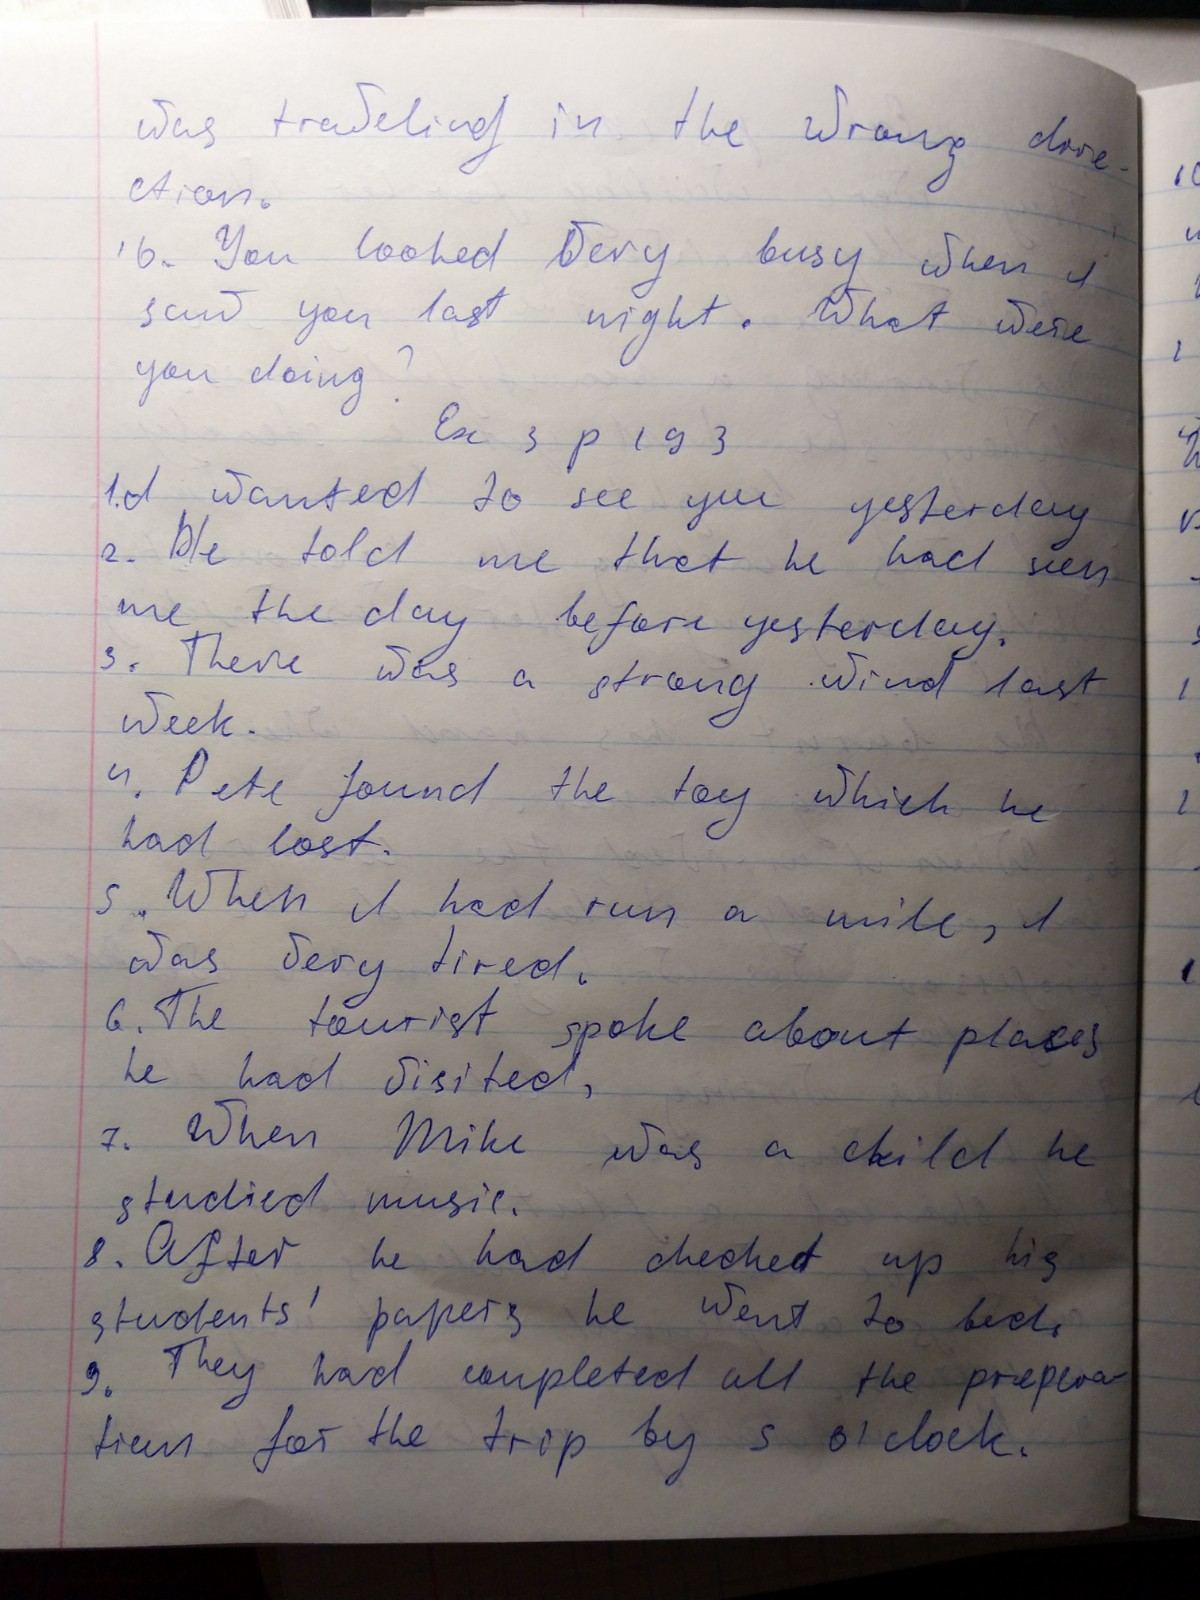 was traveling in the wrong dire-
ction.
16. You looked very busy when I
saw you last night. What were
you doing?
Ex 3 p 193
1. I wanted to see you yesterday
2. He told me that he had seen
me the day before yesterday.
3. There was a strong wind last
week.
4. Pete found the toy which he
had lost.
5. When I had run a mile, I
was very tired.
6. The tourist spoke about places
he had visited,
7. When Mike was a child he
studied music.
8. After he had checked up his
students' papers he went to bed.
9. They had completed all the prepera-
tion for the trip by 5 o'clock.